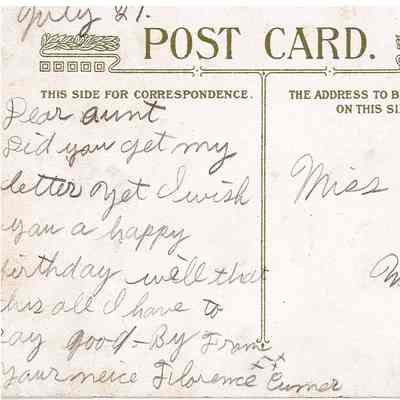 July 21.
POST CARD.
THIS SIDE FOR CORRESPONDENCE.
THE ADDRESS TO B
ON THIS SI
Dear aunt
Did you get my
letter yet I wish
you a happy
birthday well that
his all I have to
say good-By From
your neice Florence
Miss
M